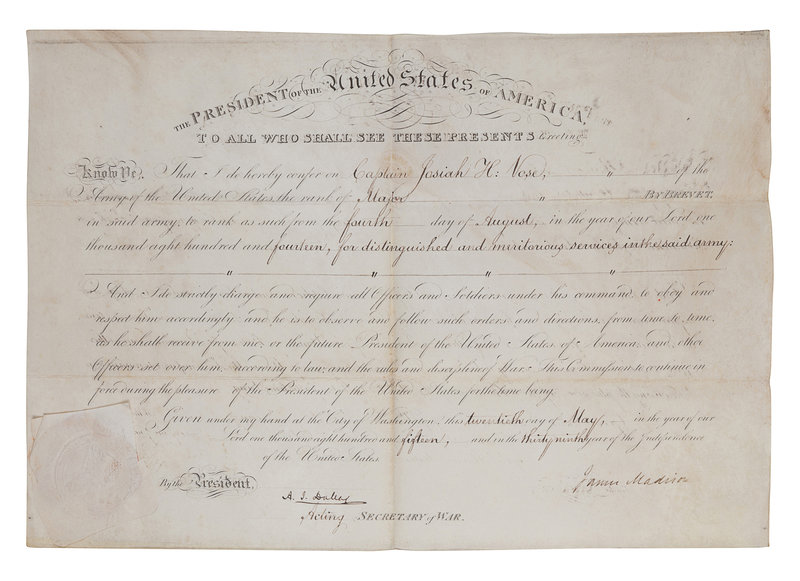 THE PRESIDENT OF THE United States OF AMERICA,
TO ALL WHO SHALL SEE THESE PRESENTS Greeting:
Know Ye, That I do hereby confer on Captain Josiah H: Vose, " of the
Army of the United States, the rank of Major " BY BREVET,
in said army, to rank as such from the fourth day of August, in the year of our Lord one
thousand eight hundred and fourteen, for distinguished and meritorious services in the said army:
" " " "
And I do strictly charge and require all Officers and Soldiers under his command, to obey and
respect him accordingly and he is to observe and follow such orders and directions, from time to time,
as he shall receive from me, or the future President of the United States of America, and other
Officers set over him, according to law, and the rules and discipline of War. This Commission to continue in
force during the pleasure of the President of the United States for the time being.
Given under my hand at the City of Washington, this twentieth day of May, in the year of our
Lord one thousand eight hundred and fifteen, and in the thirty ninth year of the Independence
of the United States.
By the President,
James Madison
A. J. Dallas
Acting SECRETARY of WAR.